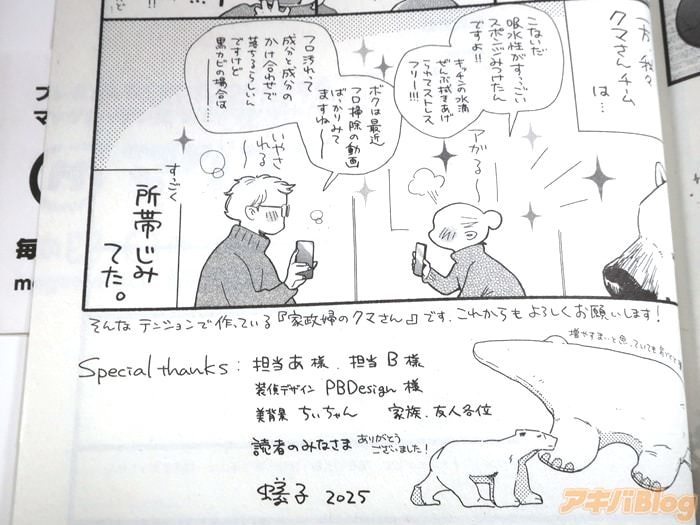 一方、我々
クマさんチーム
は…
こないだ
吸水性がすっごい
スポンジみつけたん
ですよ!!
キッチンの水滴
ぜんぶ拭きあげ
られてストレス
フリー!!!
アがる〜
ボクは最近
フロ掃除の動画
ばっかりみて
ますね〜
フロ汚れって
成分と成分の
かけ合わせで
落ちるらしいん
ですけど
黒カビの場合は
いやさ
れる〜
すっごく
所帯じみ
てた。
そんなテンションで作っている『家政婦のクマさん』です。これからもよろしくお願いします!
増やすまいと思っていても
Special thanks: 担当あ様、担当B様
装偵デザイン PBDesign 様
美背景 ちぃちゃん 家族、友人各位
読者のみなさま ありがとう
ございました!
蟻子 2025
アキバBlog